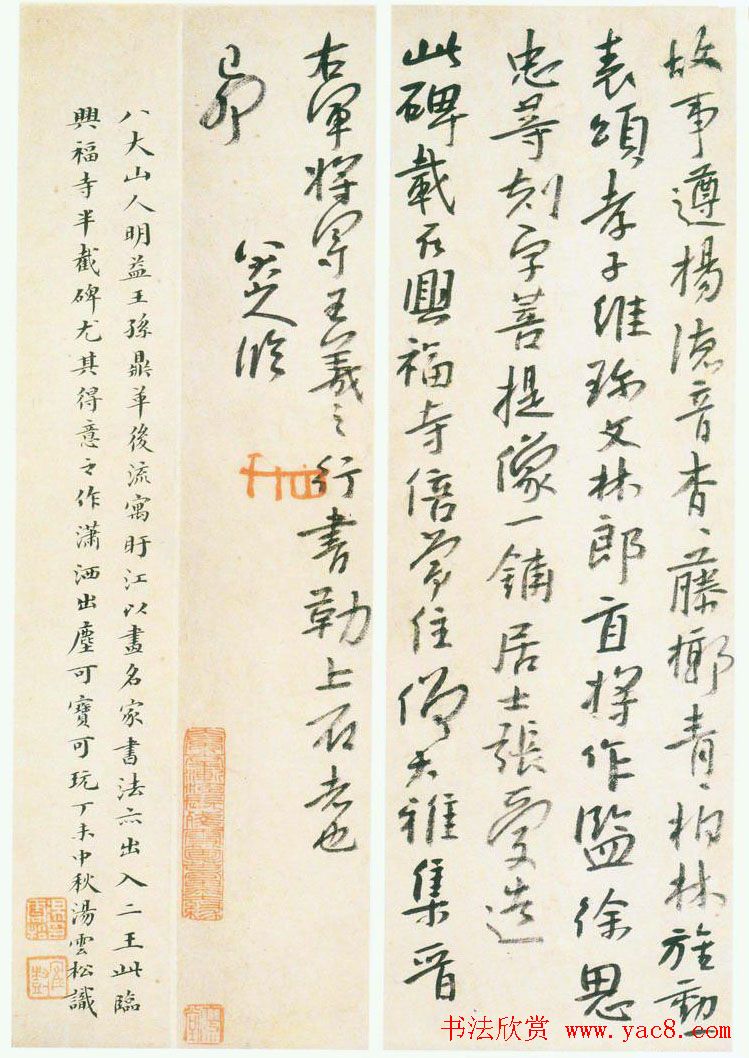 故事遵揚德音杳〻藤槨青〻柏林旌勳
表頌孝子維珎文林郎直將作監徐思
忠等刻字菩提像一鋪居士張愛造
此碑載在興福寺倍常住僧大雅集晉
右軍將軍王羲之行書勒上石者也
己卯
八大山人臨
八大山人明益王孫鼎革後流寓盱江以畫名家書法亦出入二王此臨
興福寺半截碑尤其得意之作瀟洒出塵可寶可玩丁未中秋湯雲松識
书法欣赏 www.yac8.com